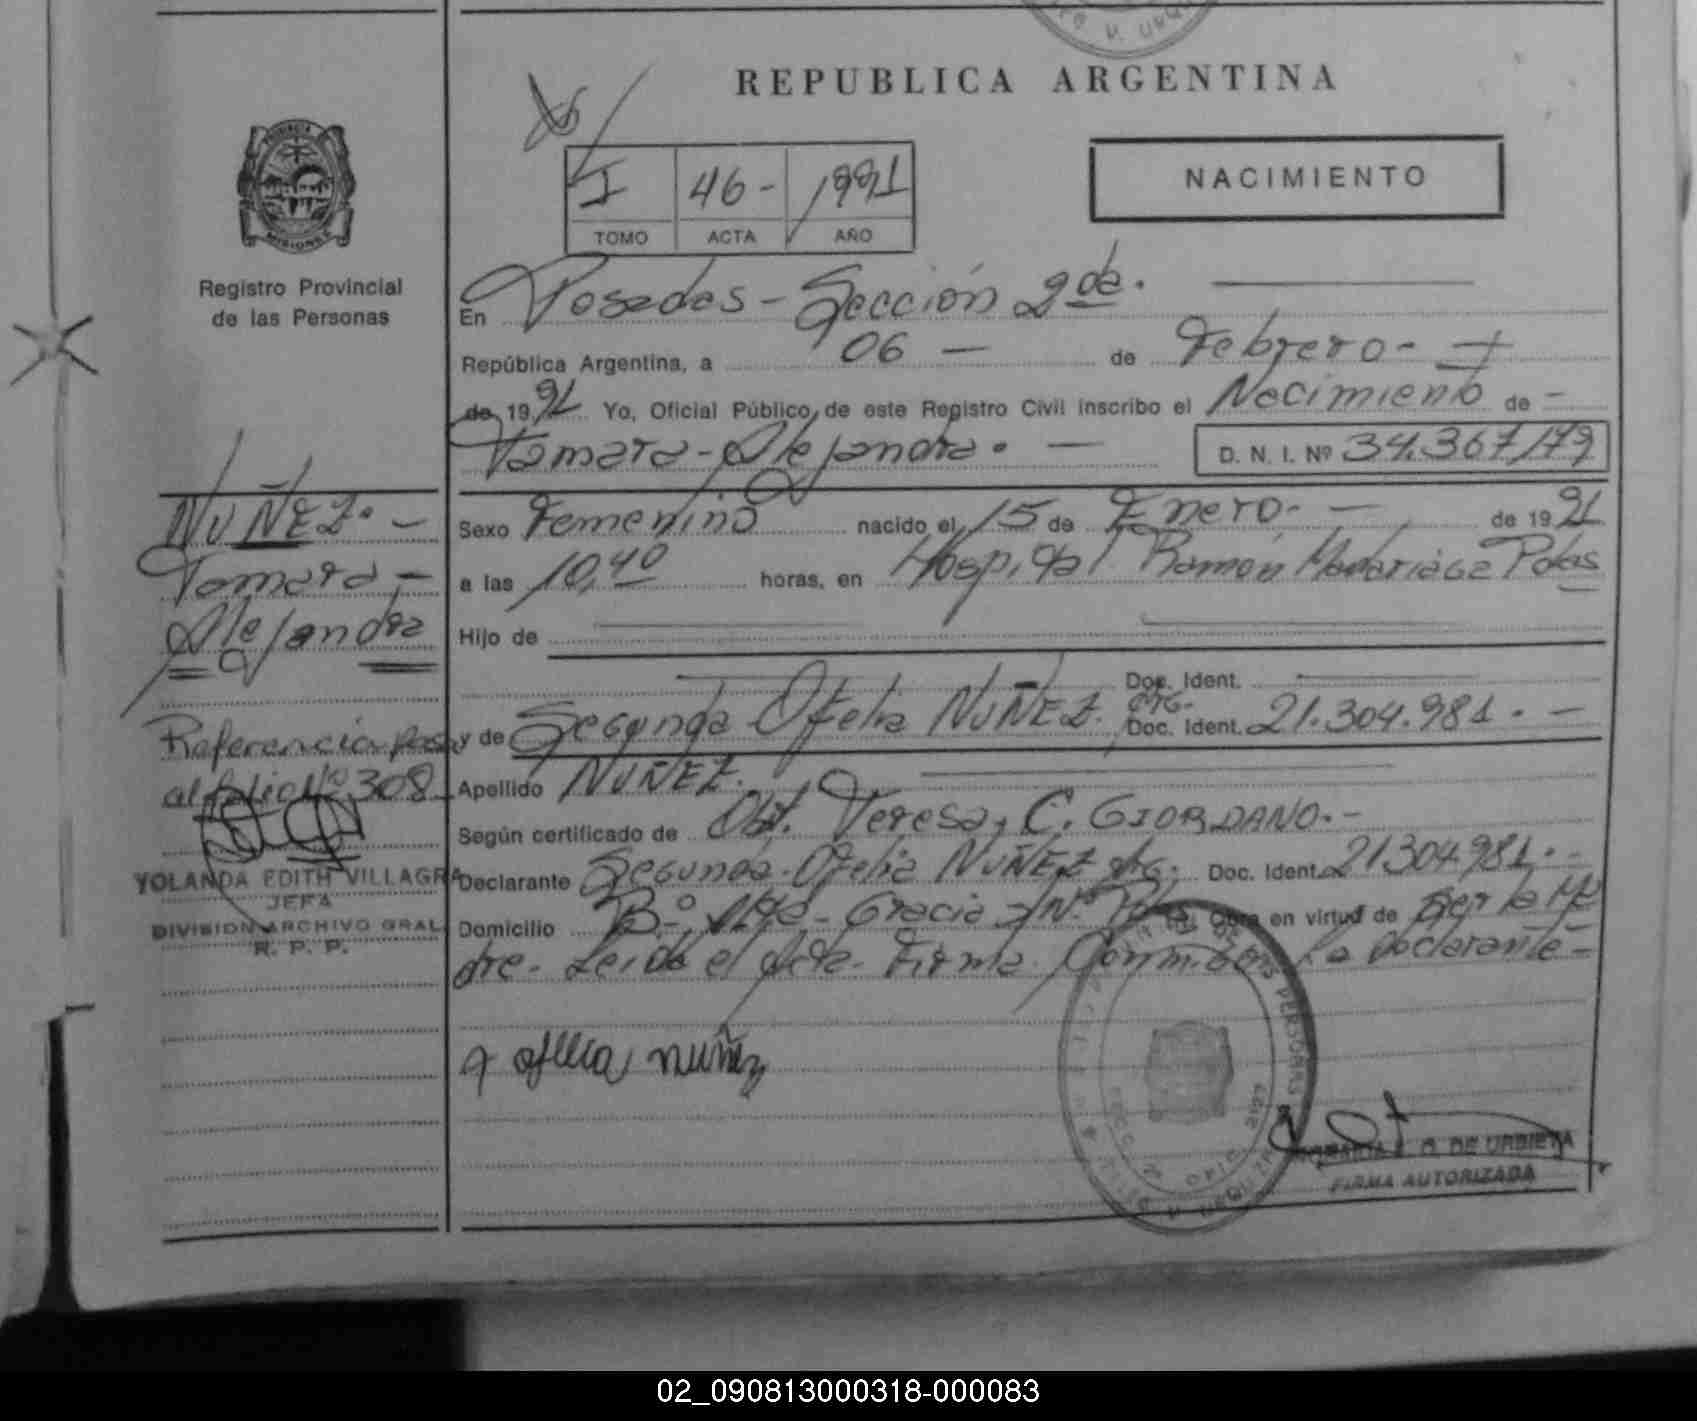 REPUBLICA ARGENTINA
PROVINCIA
MISIONES
Registro Provincial
de las Personas
I 46- 1991
TOMO ACTA AÑO
NACIMIENTO
En Posadas - Sección 2da.
República Argentina, a 06 - de Febrero.-
de 1991 Yo, Oficial Público, de este Registro Civil inscribo el Nacimiento de -
Tamara - Alejandra. - D. N. I. Nº 34.367.179
NUÑEZ.-
Tamara -
Alejandra
Sexo Femenino nacido el 15 de Enero.- de 1991
a las 10,40 horas, en Hospital Ramón Madariaga Pdas
Hijo de
Doc. Ident.
y de Segunda Ofelia NUÑEZ. Doc. Ident. 21.304.981.-
Referencia pasa
al folio Nº 308
Apellido NUÑEZ.
Según certificado de Obst. Teresa, C. GIORDANO.-
Declarante Segunda Ofelia NUÑEZ Doc. Ident. 21304981.-
Domicilio Bº Gracia en virtud de ser la Ma
dre. Leida el Acta. Firma la Declarante -
YOLANDA EDITH VILLAGRA
JEFA
DIVISION ARCHIVO GRAL
R. P. P.
ofelia nuñez
DE URBIETA
FIRMA AUTORIZADA
02_090813000318-000083